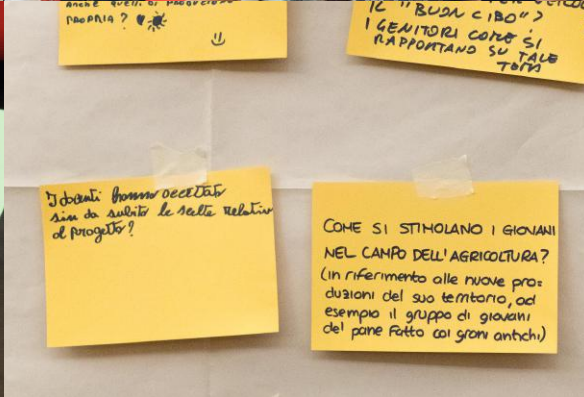 ANCHE QUELLI DI PRODUZIONE
PROPRIA?
IL "BUON CIBO"?
I GENITORI COME SI
RAPPORTANO SU TALE
TEMA
I docenti hanno accettato
sin da subito le scelte relative
al progetto?
COME SI STIMOLANO I GIOVANI
NEL CAMPO DELL'AGRICOLTURA?
(in riferimento alle nuove pro=
duzioni del suo territorio, ad
esempio il gruppo di giovani
del pane fatto coi grani antichi)